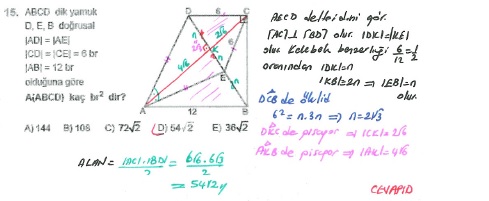 15. ABCD dik yamuk
D, E, B doğrusal
|AD| = |AE|
|CD| = |CE| = 6 br
|AB| = 12 br
olduğuna göre
A(ABCD) kaç br² dir?
A) 144 B) 108 C) 72√2 D) 54√2 E) 36√2
D
C
6
6
n
2√6
K
4√6
n
E
n
A
12
B
ALAN = |AC|.|BD| / 2 = 6√6.6√3 / 2
= 54√2
ABCD deltoidini gör.
[AC] ⊥ [BD] olur. |DK|=|KE|
olur Kelebek benzerliği 6/12 = 1/2
oranından |DK|=n
|KB|=2n ⇒ |EB|=n
olur.
DCB de öklid
6² = n.3n ⇒ n=2√3
DKC de pisagor ⇒ |CK|=2√6
AKB de pisagor ⇒ |AK|=4√6
CEVAP D